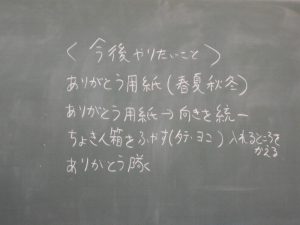 〈今後やりたいこと〉
ありがとう用紙(春夏秋冬)
ありがとう用紙→向きを統一
ちょきん箱をふやす(タテ・ヨコ) 入れるところを
かえる
ありがとう隊